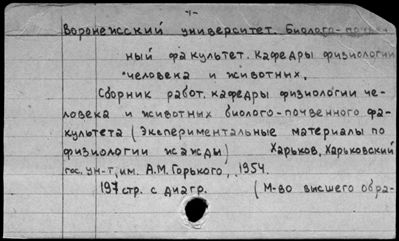 -1-
Воронежский университет. Биолого-почвен-
ный факультет. Кафедры физиологии
человека и животных.
Сборник работ. кафедры физиологии че-
ловека и животных биолого-почвенного фа-
культета (Экспериментальные материалы по
физиологии жажды) Харьков, Харьковский
гос. ун-т, им. А.М. Горького, 1954.
197 стр. с диагр. (М-во высшего обра-